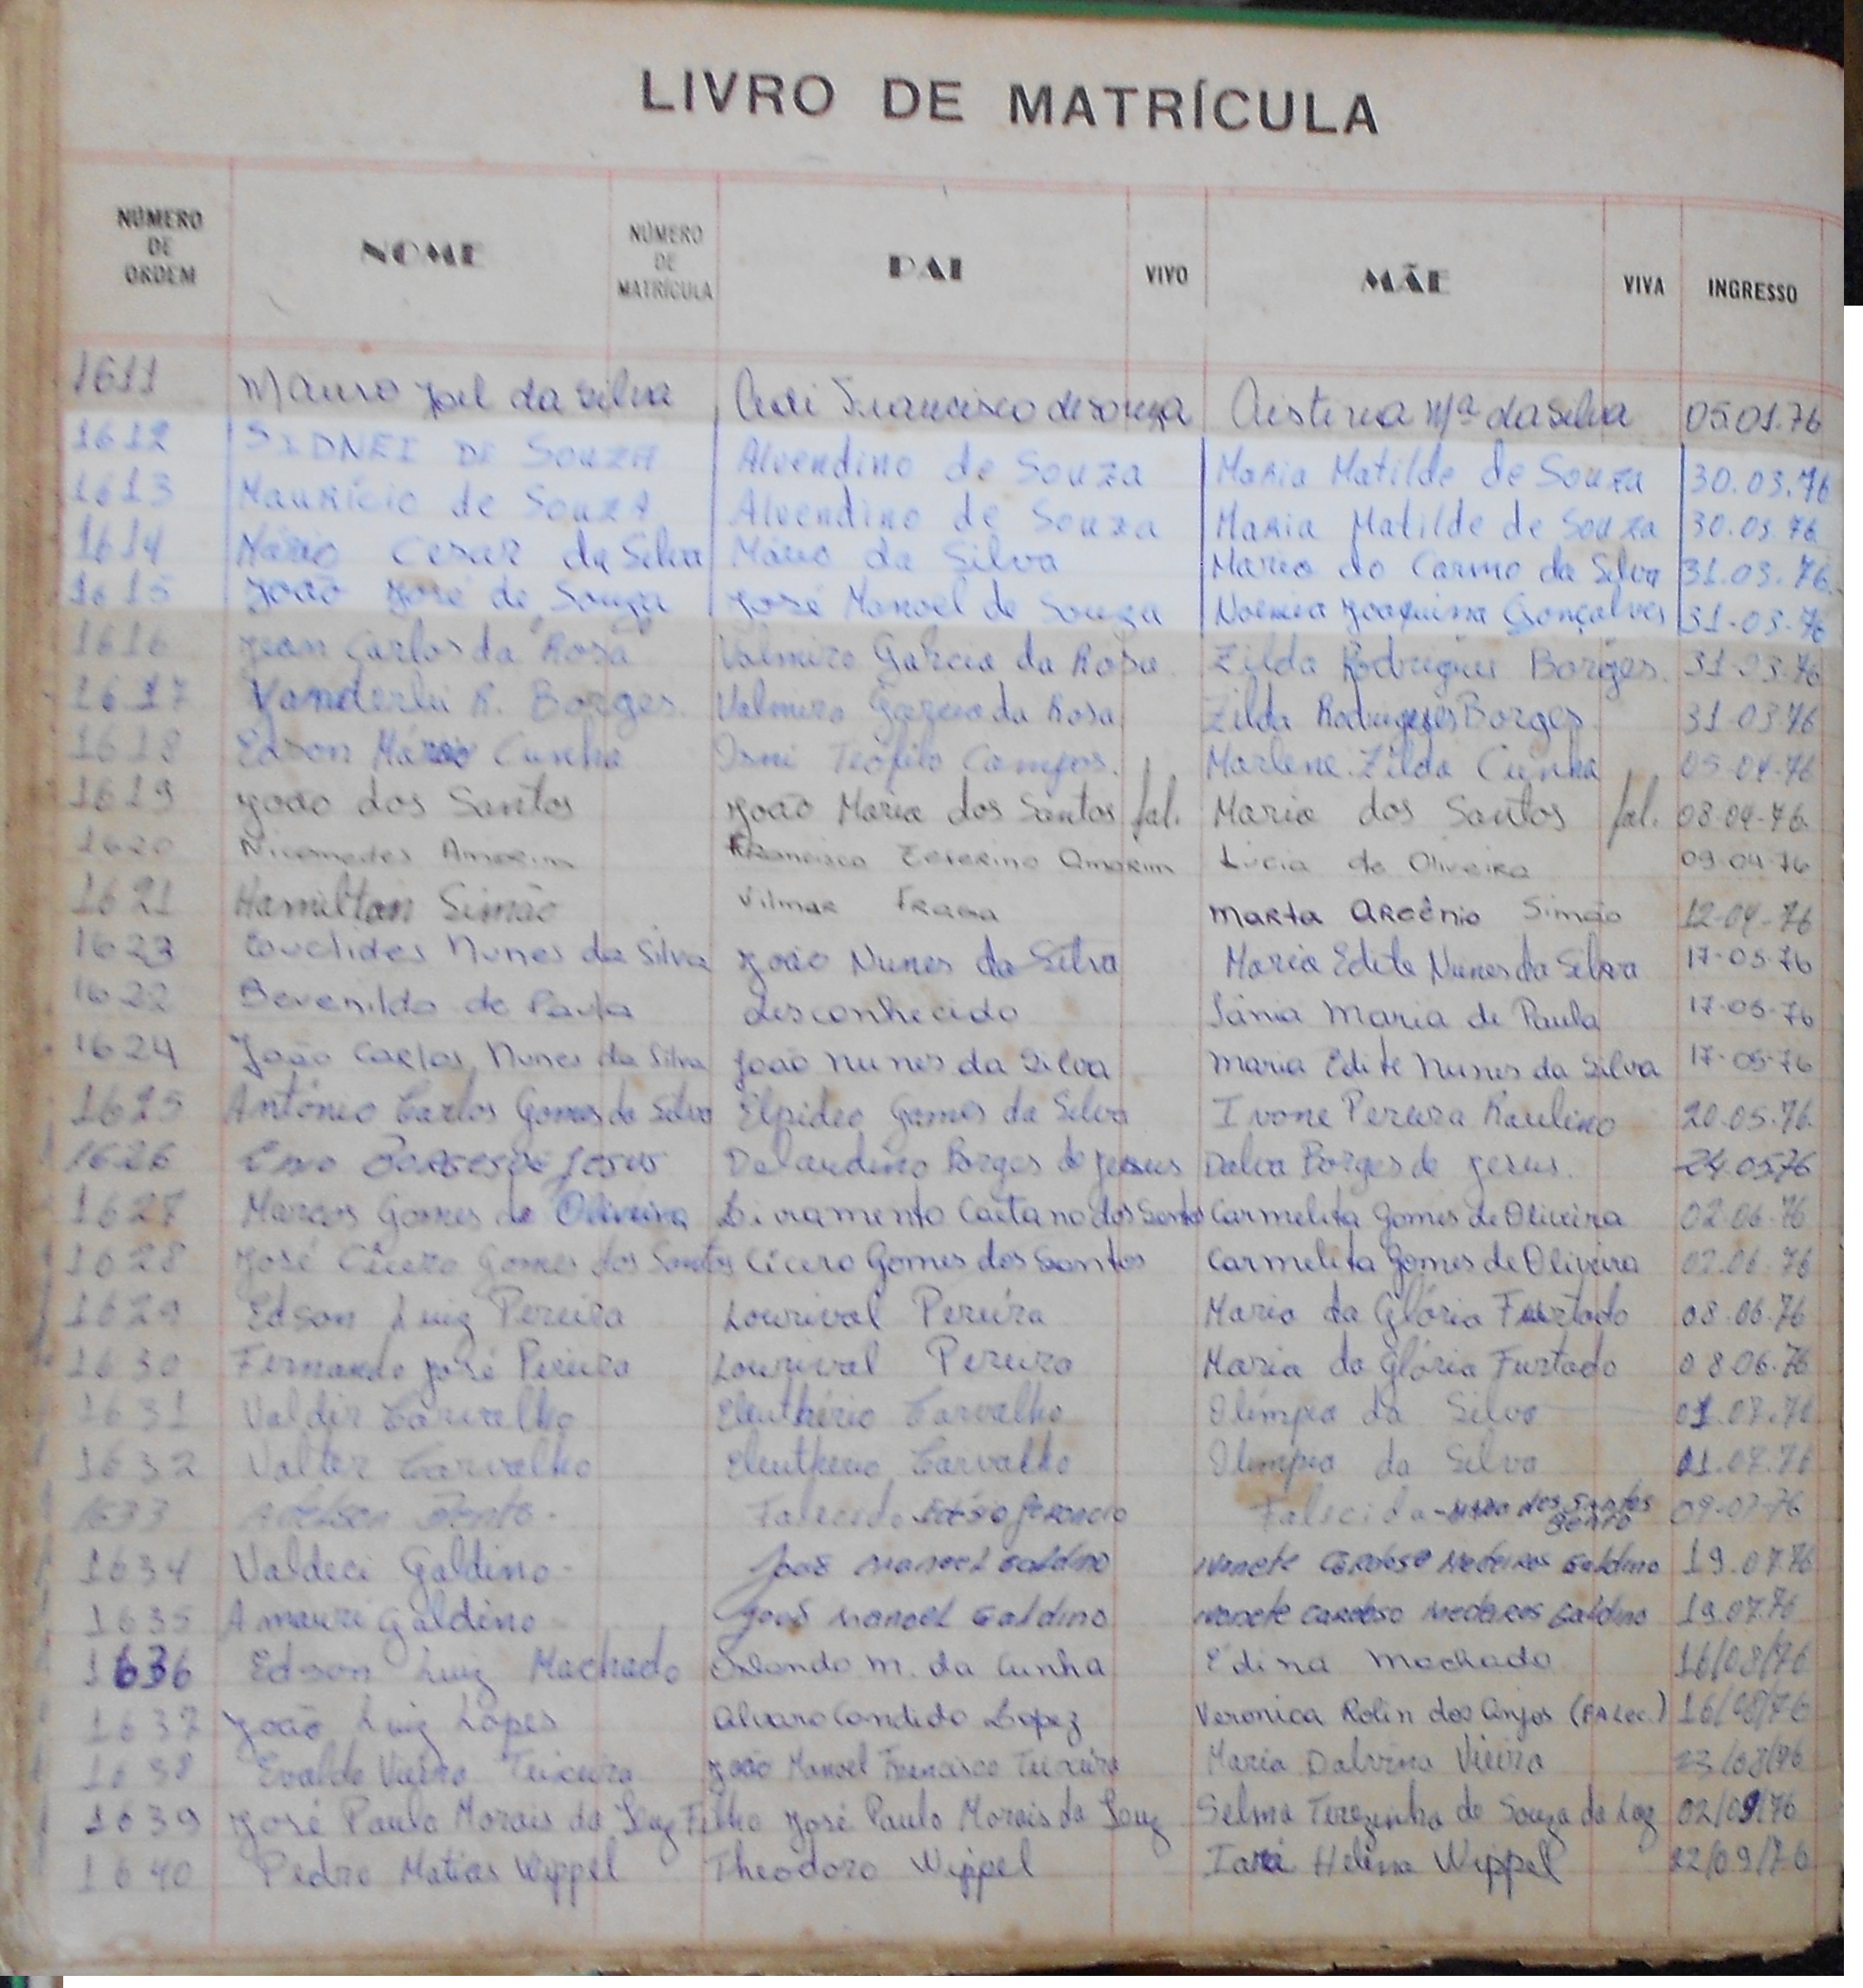 LIVRO DE MATRÍCULA
NÚMERO DE ORDEM NOME NÚMERO DE MATRÍCULA PAI VIVO MÃE VIVA INGRESSO
1611 Mauro Joel da Silva Francisco de Souza Mª da Silva 05.01.76
1612 SIDNEI DE SOUZA Alvendino de Souza Maria Matilde de Souza 30.03.76
1613 Maurício de Souza Alvendino de Souza Maria Matilde de Souza 30.03.76
1614 Mário Cesar da Silva Mário da Silva Maria do Carmo da Silva 31.03.76
1615 João José de Souza José Manoel de Souza Noemia Joaquina Gonçalves 31-03-76
1616 Jean Carlos da "Rosa" Valmiro Garcia da Rosa Zilda Rodrigues Borges. 31-03-76
1617 Vanderlei R. Borges. Valmiro Garcia da Rosa Zilda Rodrigues Borges 31 03 76
1618 Edson Mário Cunha Teófilo Campos. Marlene Zilda Cunha 05-04-76
1619 João dos Santos João Maria dos Santos fal. Maria dos Santos fal. 08-04-76.
1620 Nicomedes Amorim Francisco Zeferino Amorim Lucia de Oliveira 09-04-76
1621 Hamilton Simão Vilmar Fraga Marta Argênio Simão 12-04-76
1623 Euclides Nunes da Silva João Nunes da Silva Maria Edite Nunes da Silva 17-05-76
1622 Bevenildo de Paula desconhecido Tânia Maria de Paula 17-05-76
1624 João Carlos Nunes da Silva João Nunes da Silva Maria Edite Nunes da Silva 17-05-76
1625 Antônio Carlos Gomes da Silva Elpideo Gomes da Silva Ivone Pereira Raulino 20.05.76.
1626 BORGES DE JESUS Borges de Jesus Dalva Borges de Jesus. 24.05.76
1627 Marcos Gomes de Oliveira Livramento Caetano dos Santos Carmelita Gomes de Oliveira 02.06.76
1628 José Cícero Gomes dos Santos Cícero Gomes dos Santos Carmelita Gomes de Oliveira 02.06.76
1629 Edson Luiz Pereira Lourival Pereira Maria da Glória Furtado 08.06.76
1630 Fernando José Pereira Lourival Pereira Maria da Glória Furtado 08.06.76
1631 Valdir Carvalho Eleuthério Carvalho Olímpia da Silva 01.07.76
1632 Valter Carvalho Eleuthério Carvalho Olímpia da Silva 01.07.76
1633 Bento. Falecido Falecida - dos Santos Bento 09-07-76
1634 Valdeci Galdino - José Manoel Galdino Ivonete Cardoso Medeiros Galdino 19.07.76
1635 Amauri Galdino José Manoel Galdino Ivonete Cardoso Medeiros Galdino 19.07.76
1636 Edson Luiz Machado Orlando M. da Cunha Edina Machado 16/08/76
1637 João Luiz Lopes Alvaro Candido Lopez Veronica Rolin dos Anjos (FALEC.) 16/08/76
1638 Evaldo Vieira Teixeira João Manoel Francisco Teixeira Maria Dalvina Vieira 23/08/76
1639 José Paulo Morais da Luz Filho José Paulo Morais da Luz Selma Terezinha de Souza da Luz 02/09/76
1640 Pedro Matias Wippel Theodoro Wippel Iará Helena Wippel 22/09/76